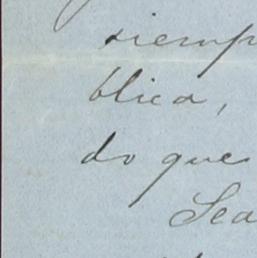 siemp
blica,
do que
Sea